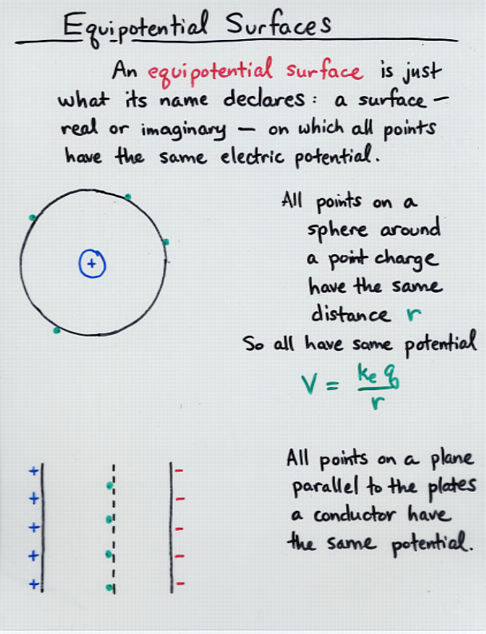 Equipotential Surfaces
An equipotential surface is just
what its name declares: a surface —
real or imaginary — on which all points
have the same electric potential.
All points on a
sphere around
a point charge
have the same
distance r
So all have same potential
V = ke q / r
+
All points on a plane
parallel to the plates
a conductor have
the same potential.
+ −
+ −
+ −
+ −
+ −